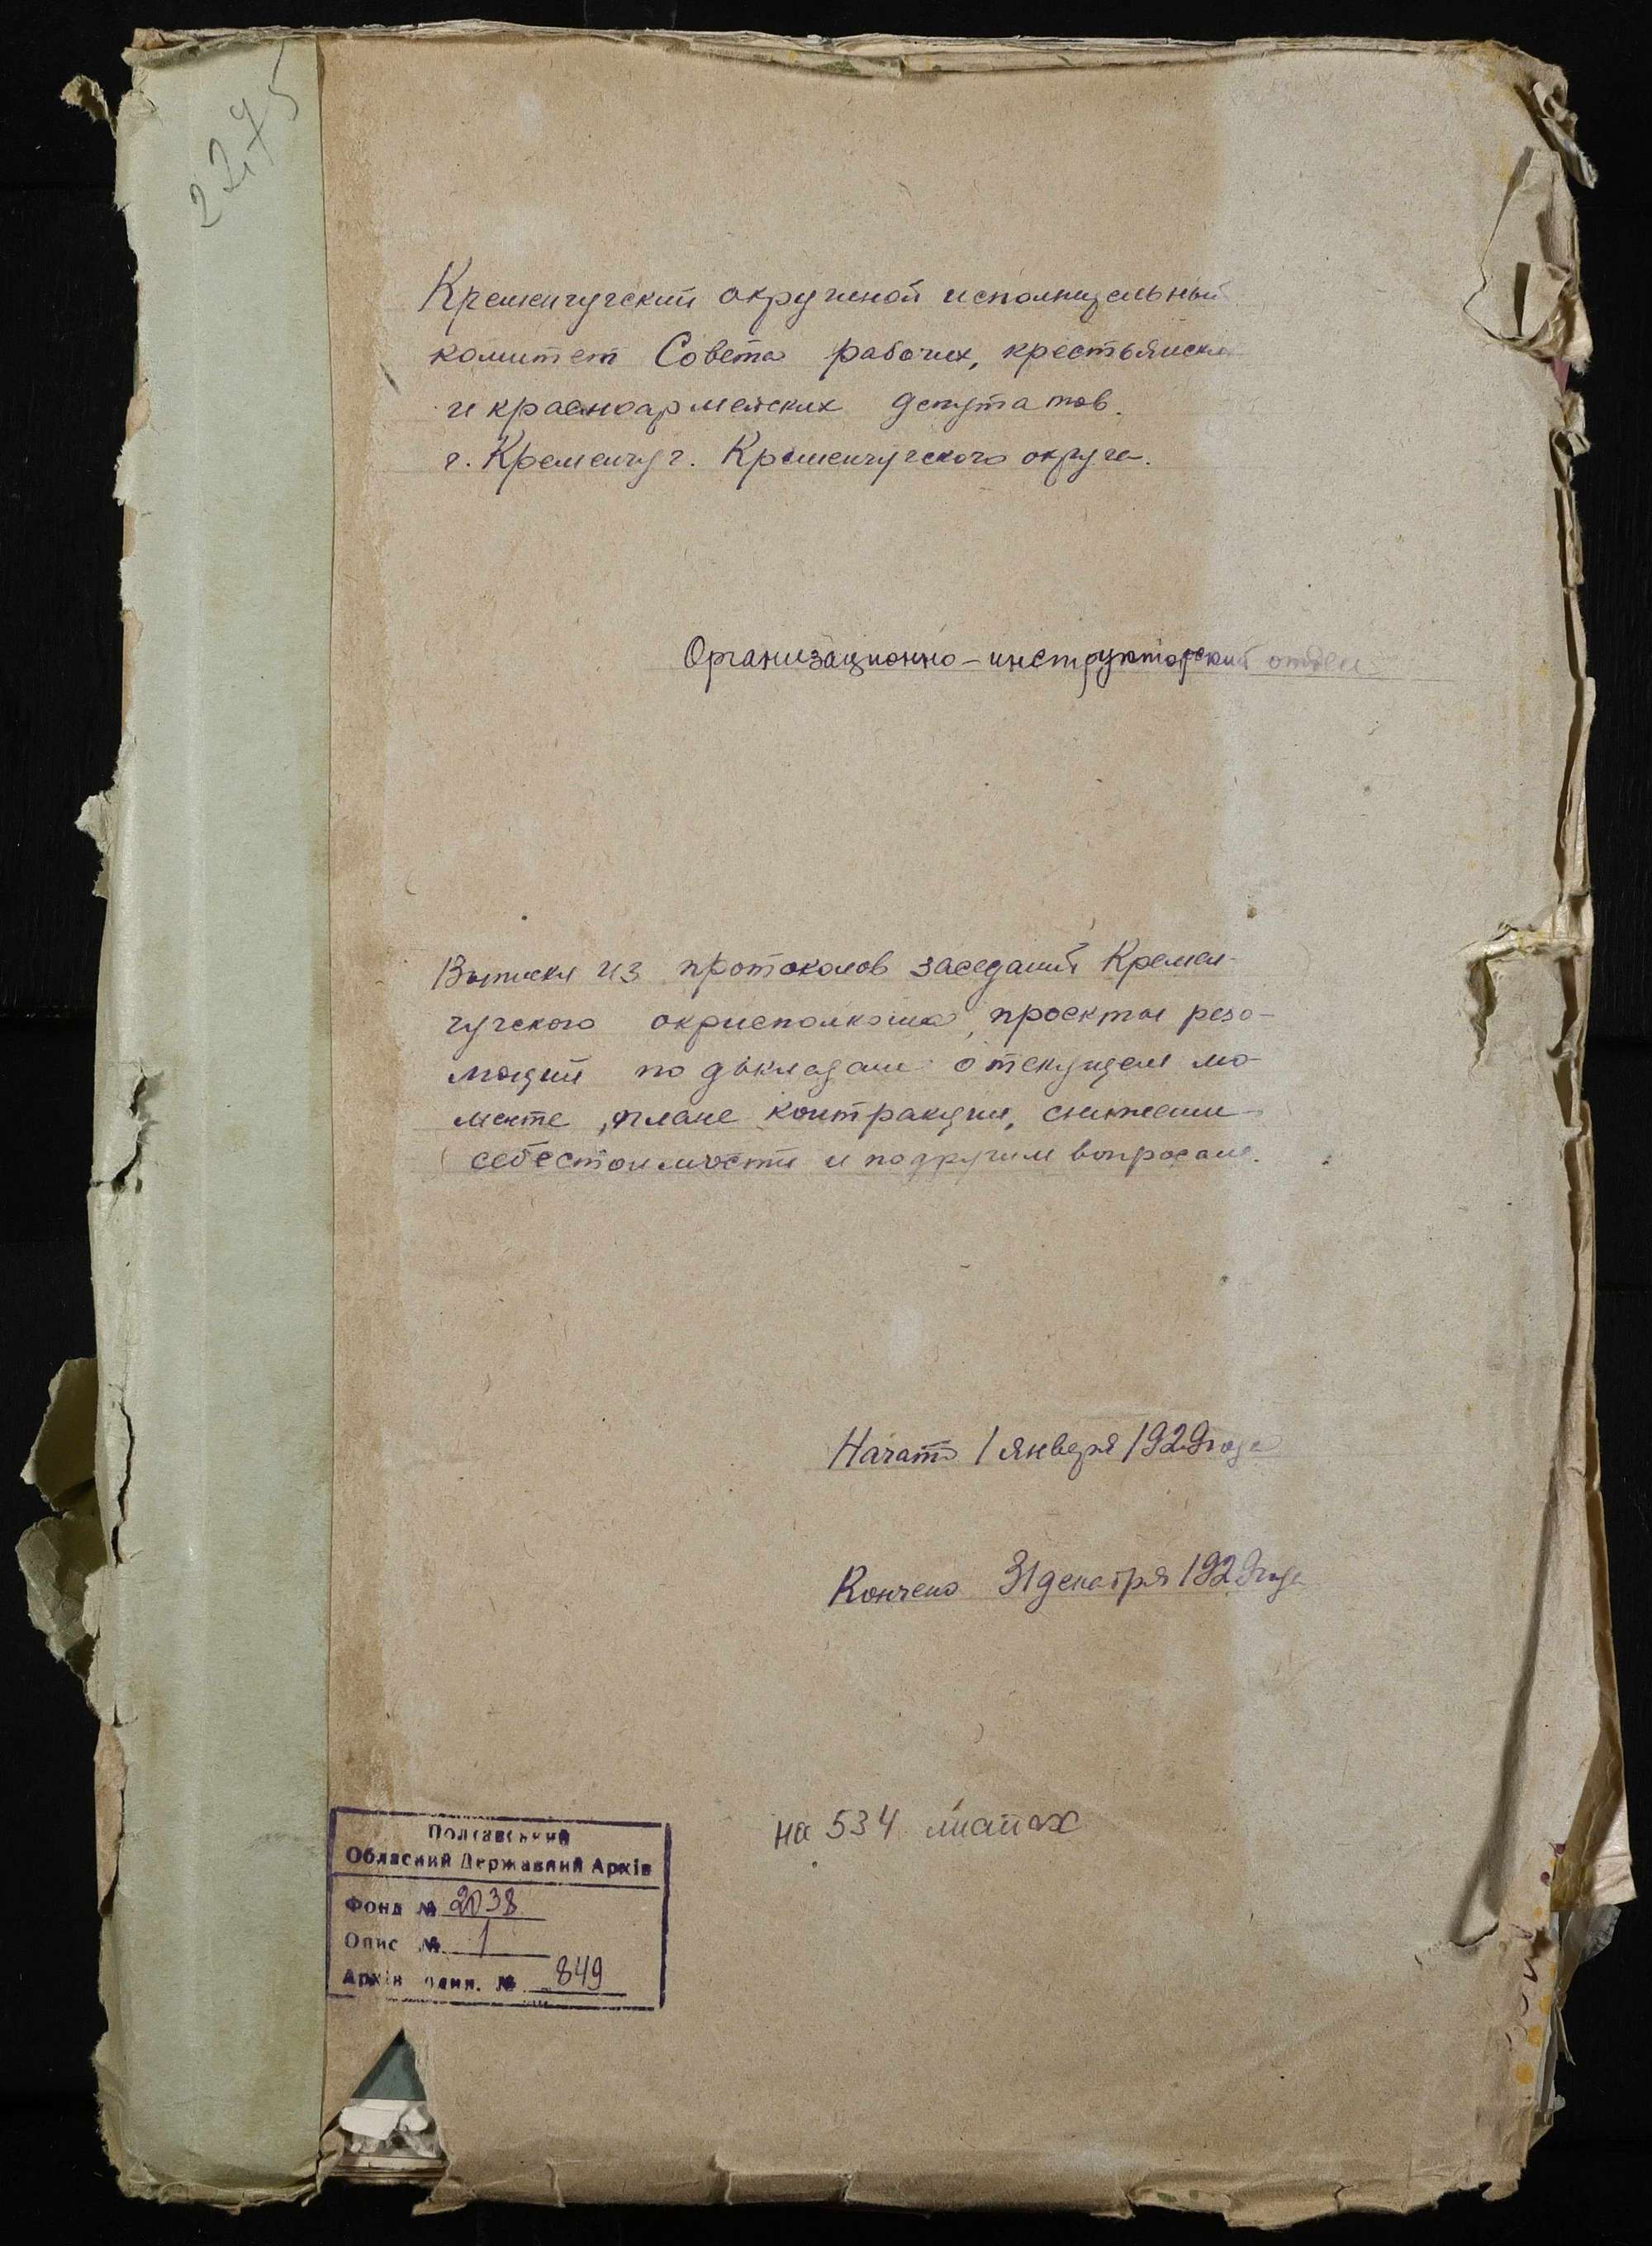 2275
Кременчугский окружной исполнительный
комитет Совета рабочих, крестьянских
и красноармейских депутатов.
г. Кременчуг. Кременчугского округа.
Организационно-инструкторский отдел
Выписки из протоколов заседаний Кремен-
чугского окрисполкома, проекты резо-
люций по докладам о текущем мо-
менте, плане контракции, снижении
себестоимости и по другим вопросам.
Начато 1 января 1929 года
Кончено 31 декабря 1929 года
на 534 листах
Полтавський
Обласний Державний Архів
Фонд № 2038
Опис № 1
Архів. один. № 849